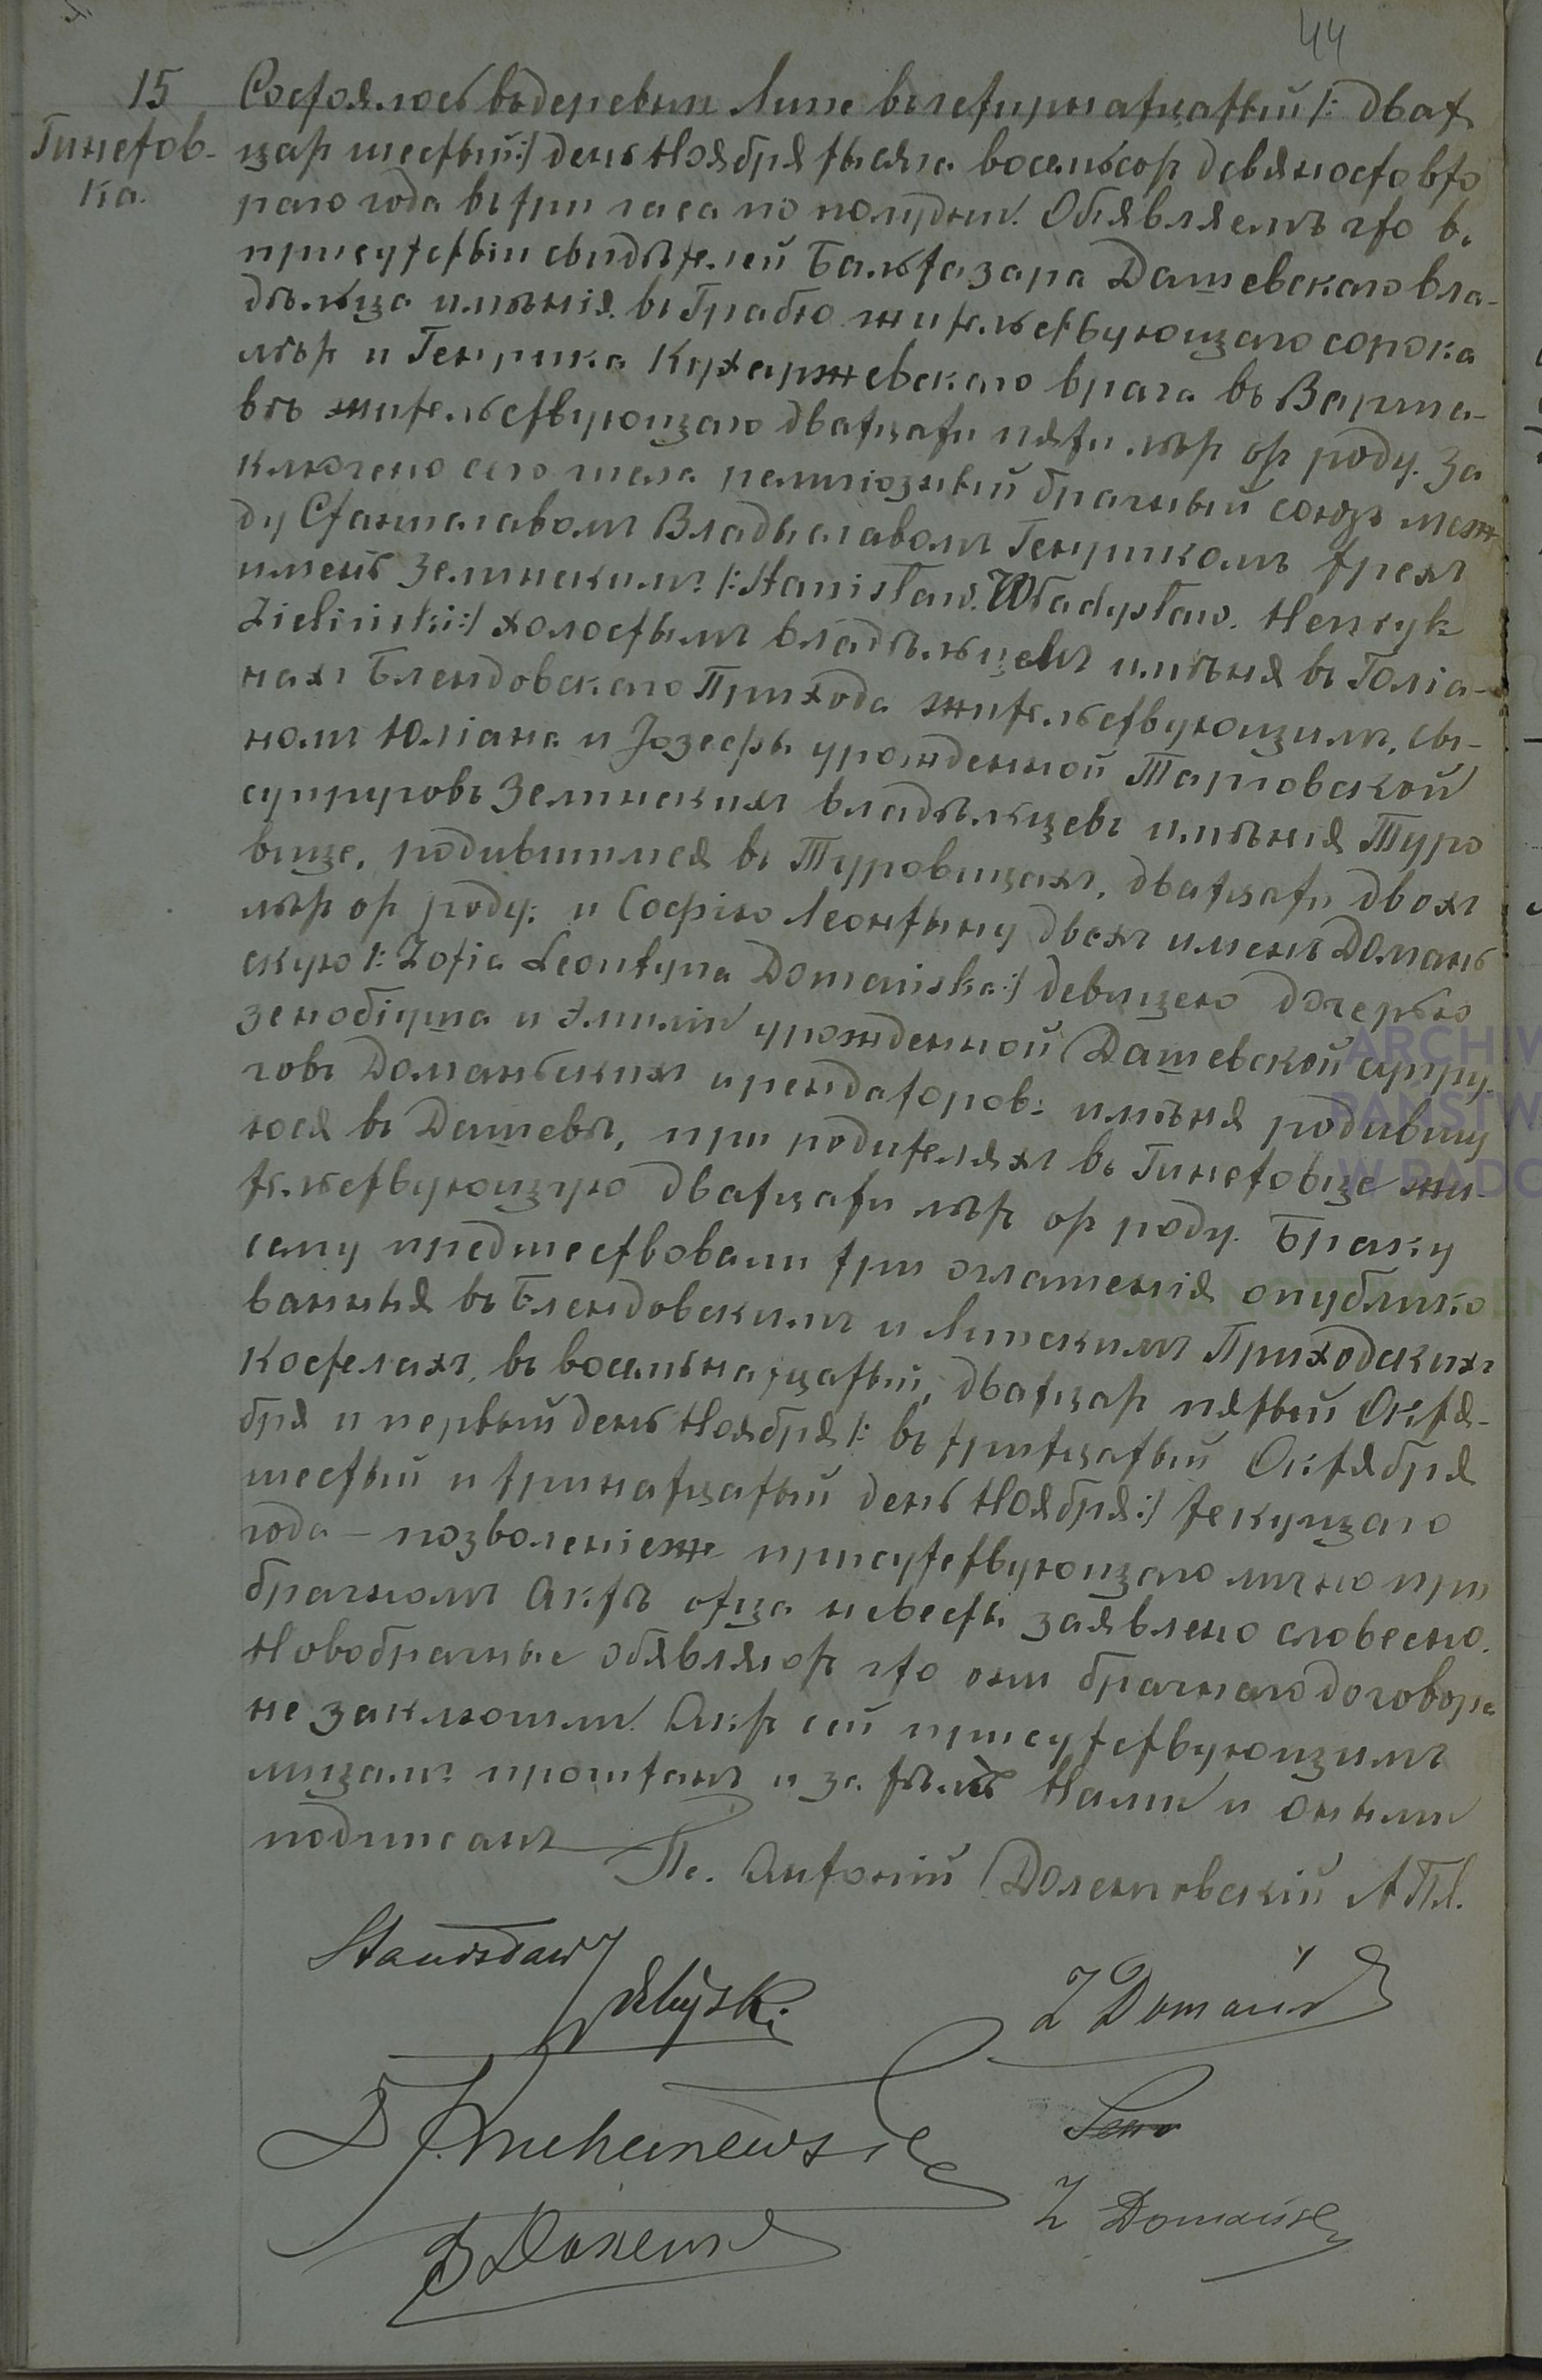 44
15
Гинетов-
ка.
Состоялось въ деревни Липе въ четырнатцатый /: дват
цат шестый :/ день Ноября тысяча восемьсот девяносто вто
раго года въ три часа по полудни. Объявляемъ что въ
присутствіи свидѣтелей Бальтазара Дашевскаго вла-
дѣльца имѣнія въ Грабю жительствующаго сорока
лѣт и Генрика Кухаржевскаго врача въ Варша-
вѣ жительствующаго дватцати пяти лѣт от роду. За
ключено сего числа религіозный брачный союзъ меж
ду Станиславомъ Владыславомъ Генрикомъ трехъ
именъ Зелинскимъ /: Stanisław. Władysław. Henryk
Zieliński :/ холостымъ владѣльцемъ имѣня въ Голіа-
нахъ Блендовскаго Прихода жительствующимъ, сы-
номъ Юліана и Іозефы урожденной Тарговской
супруговъ Зелинскихъ владѣльцевъ имѣнія Туро
вице, родившимся въ Туровицахъ, дватцати двохъ
лѣт от роду; и Софію Леонтыну двохъ именъ Домань
скую /: Zofia Leontyna Domańska :/ девицею дочерью
Зенобіуша и Эмиліи урожденной Дашевской супру
говъ Доманьскихъ арендаторовъ имѣня родившу
юся въ Дашевѣ, при родителяхъ въ Гинетовце жи-
тельствующую дватцати лѣт от роду. Браку
сему предшествовали три оглашенія опублико
ванныя въ Блендовскимъ и Липскимъ Приходскихъ
Костелахъ, въ восемьнатцатый, дватцат пятый Октя-
бря и первый день Ноября /: въ тритцатый Октября
шестый и тринатцатый день Ноября :/ текущаго
года — позволеніеже присутствующаго лично при
брачномъ Актѣ отца невесты заявлено словесно.
Новобрачные объявляют что они брачнаго договора
не заключили. Акт сей присутствующимъ
лицамъ прочитанъ и за тѣмъ Нами и оными
подписанъ
Кс. Антоній
Stanisław
Zieliński
Z Domańs
Z Domańsk